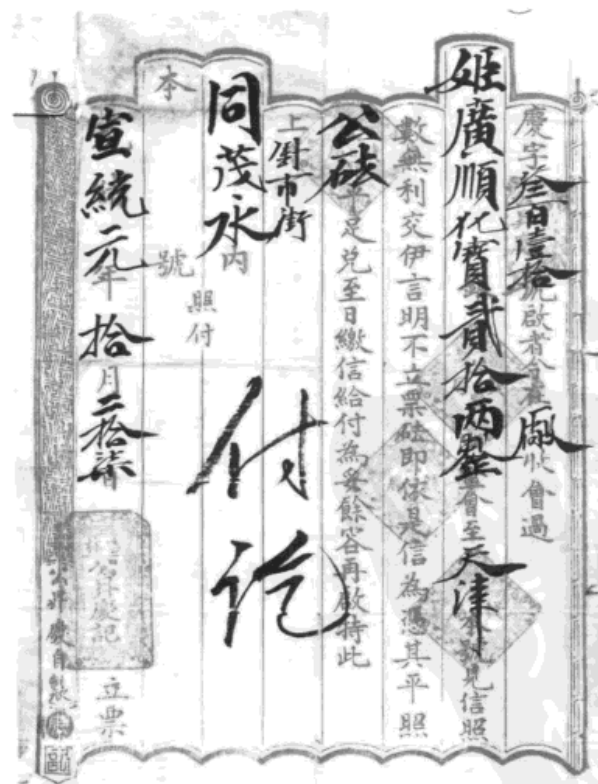 慶字叁百壹拾號啟者今在敝收會過
姬廣順化寶貳拾兩整會至天津見信照
數無利交伊言明不立票砝即依是信為憑其平照
公砝平足兌至日繳信給付為妥餘容再啟持此
上針市街
同茂永
內
照付
本
號
付訖
宣統元年拾月二拾柒
慶記
立票
慶自製